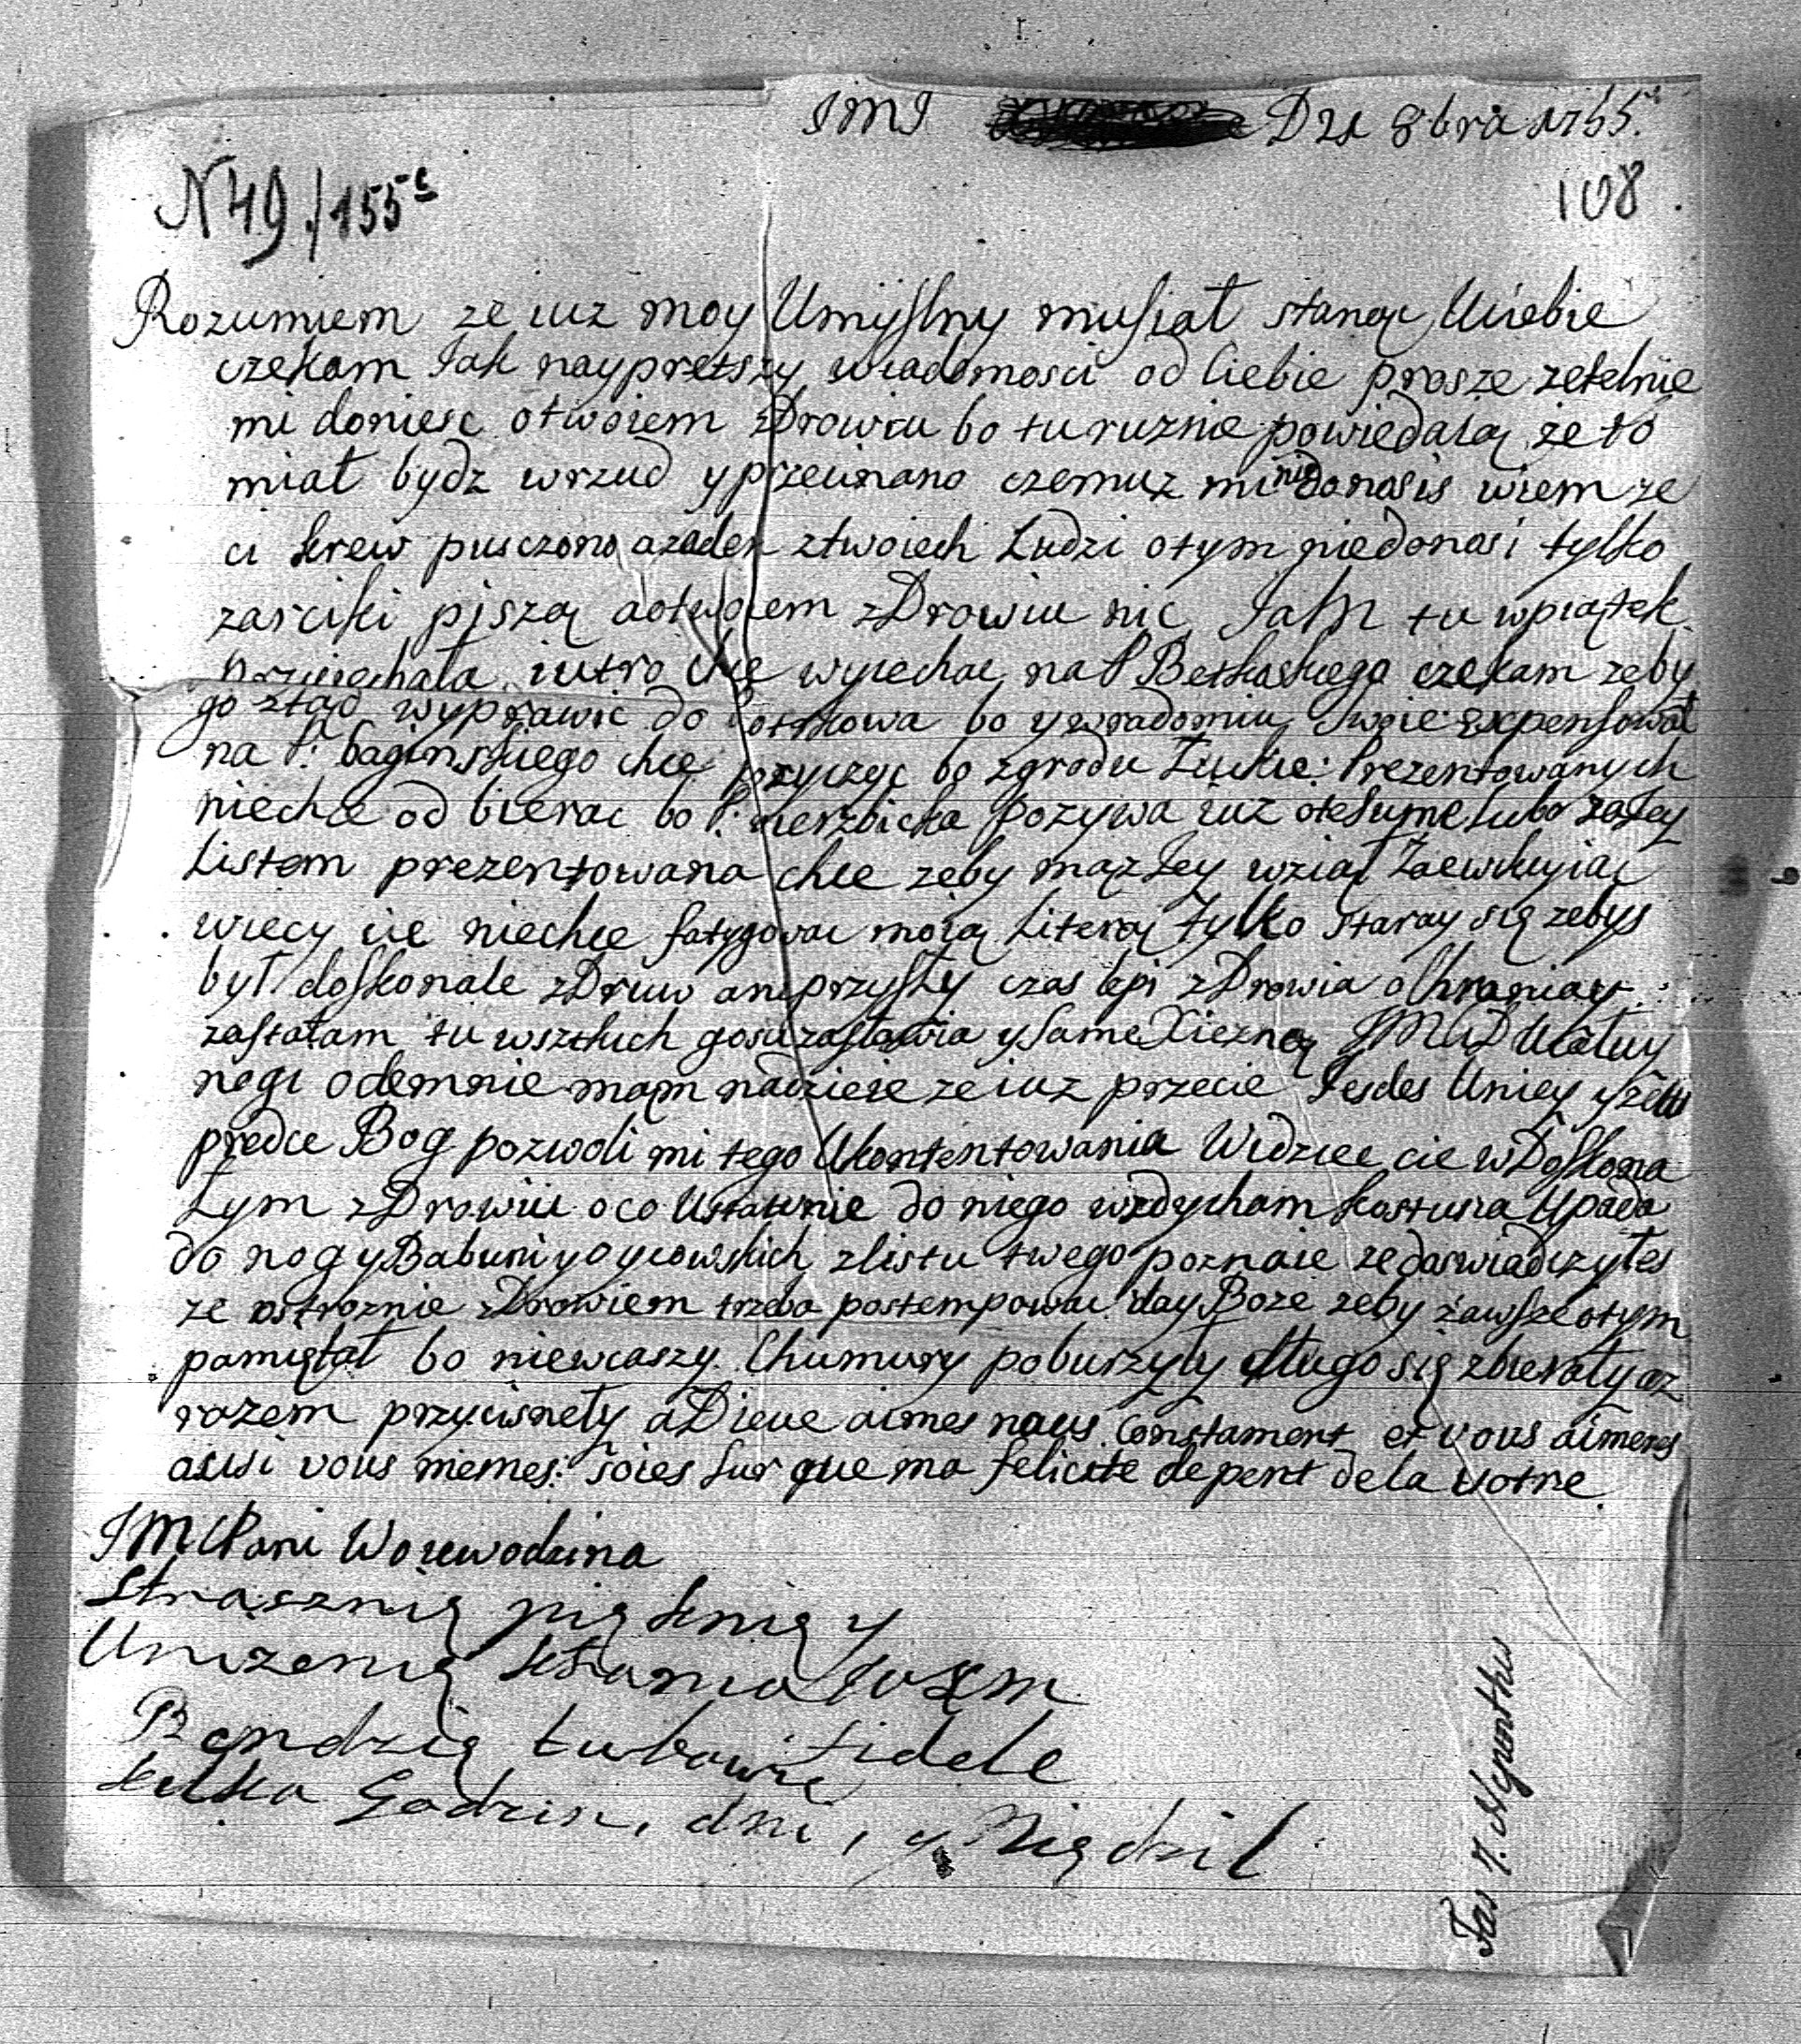 JMJ D 21 8bra 1765.
N 49./155
108.
Rozumiem ze iuz moy Umyslny musiał stanąc Uciebie
czekam Jak nayprętszy wiadomosci od Ciebie prosze zetelnie
mi doniesc otwoiem zDrowiu bo tu ruznie powiedaią, ze to
miał bydz wrzud y przeunano czemuz mi nie donosis wiem ze
ci krew pusczono azaden ztwoiech Ludzi otym niedonosi tylko
zarciki piszą aotwoiem zDrowiu nic Ja tu wpiątek
przyiechała iutro chce wyiechac na P czekam zeby
go ztąd wyprawic do bo ywradomiu swoie expensował
na P. baginskiego chce bo zgrodu Prezentowanych
niechce od bierac bo P: pozywa iuz otesume lubo
Listem prezentowana chce zeby mąz Jey wziął
wiecy cie niechce fatygowac moią Literą tylko staray się zebys
był doskonale zDruw anaprzysły czas lepi zDrowia ochraniay
zastałam tu wsztkich y same Xiezną JMci
nogi odemnie mam nadzieie ze iuz przecie Jestes Uniey y ze w
predce Bog pozwoli mi tego Ukontentowania Widziec cie w Doskona
Łym zDrowiu oco Ustawnie do niego wzdycham kostusia Upada
do nog y Babuni y oycowskich zlistu twego poznaie ze doswiadczyłes
ze ostroznie zDrowiem trzeba postempowac day Boze zeby zawsze otym
pamiętał bo niewcaszy Chumury poburzyły długo się zbierały az
razem przycisneły aDieue aimes naus constament et vous aimeres
ausi vous memes: soies sur que ma felicite depent dela votre
JMCPani Woiewodzina
Strasznię pięknię y
Unizenię kłania
Bendzię Łubowi Fidele
kilka Godzin, dni, y Niędzil
Fas 7.